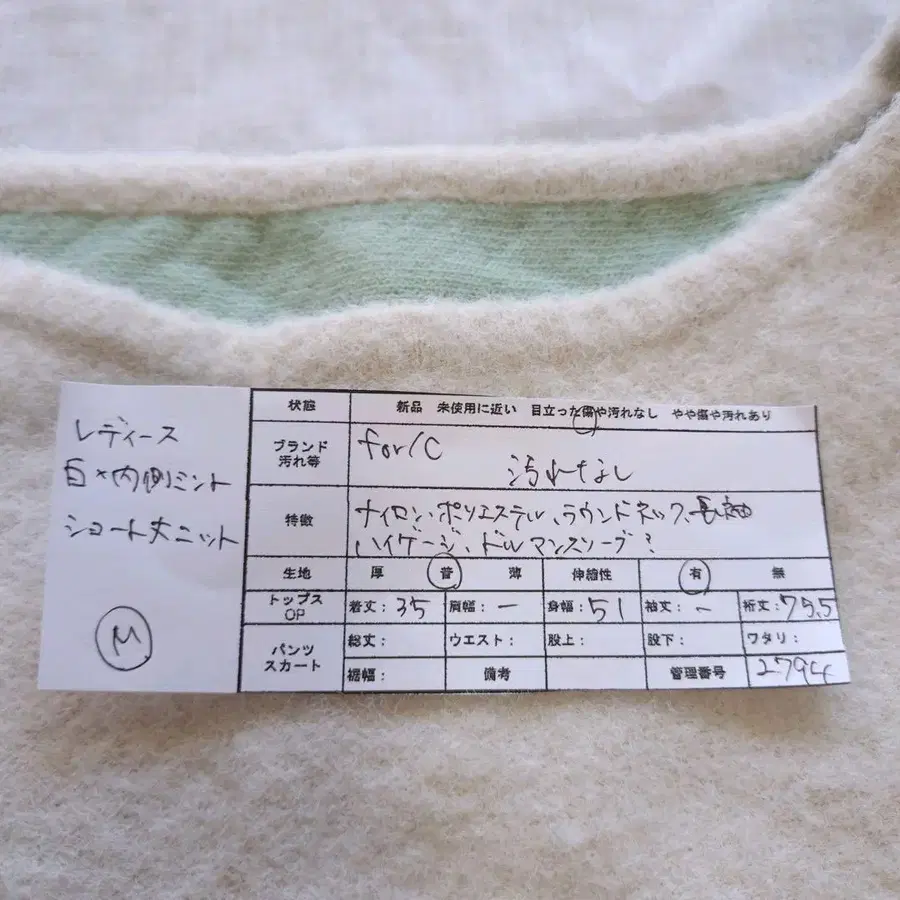 レディース
白×内側ミント
ショート丈ニット
M
状態 新品 未使用に近い 目立った傷や汚れなし やや傷や汚れあり
ブランド
汚れ等
for/c
汚れなし
特徴
ナイロン、ポリエステル、ラウンドネック、長袖
ハイゲージ、ドルマンスリーブ?
生地 厚 普 薄 伸縮性 有 無
トップス
OP
着丈:35 肩幅:ー 身幅:51 袖丈:- 裄丈:75.5
パンツ
スカート
総丈: ウエスト: 股上: 股下: ワタリ:
裾幅: 備考 管理番号 2794